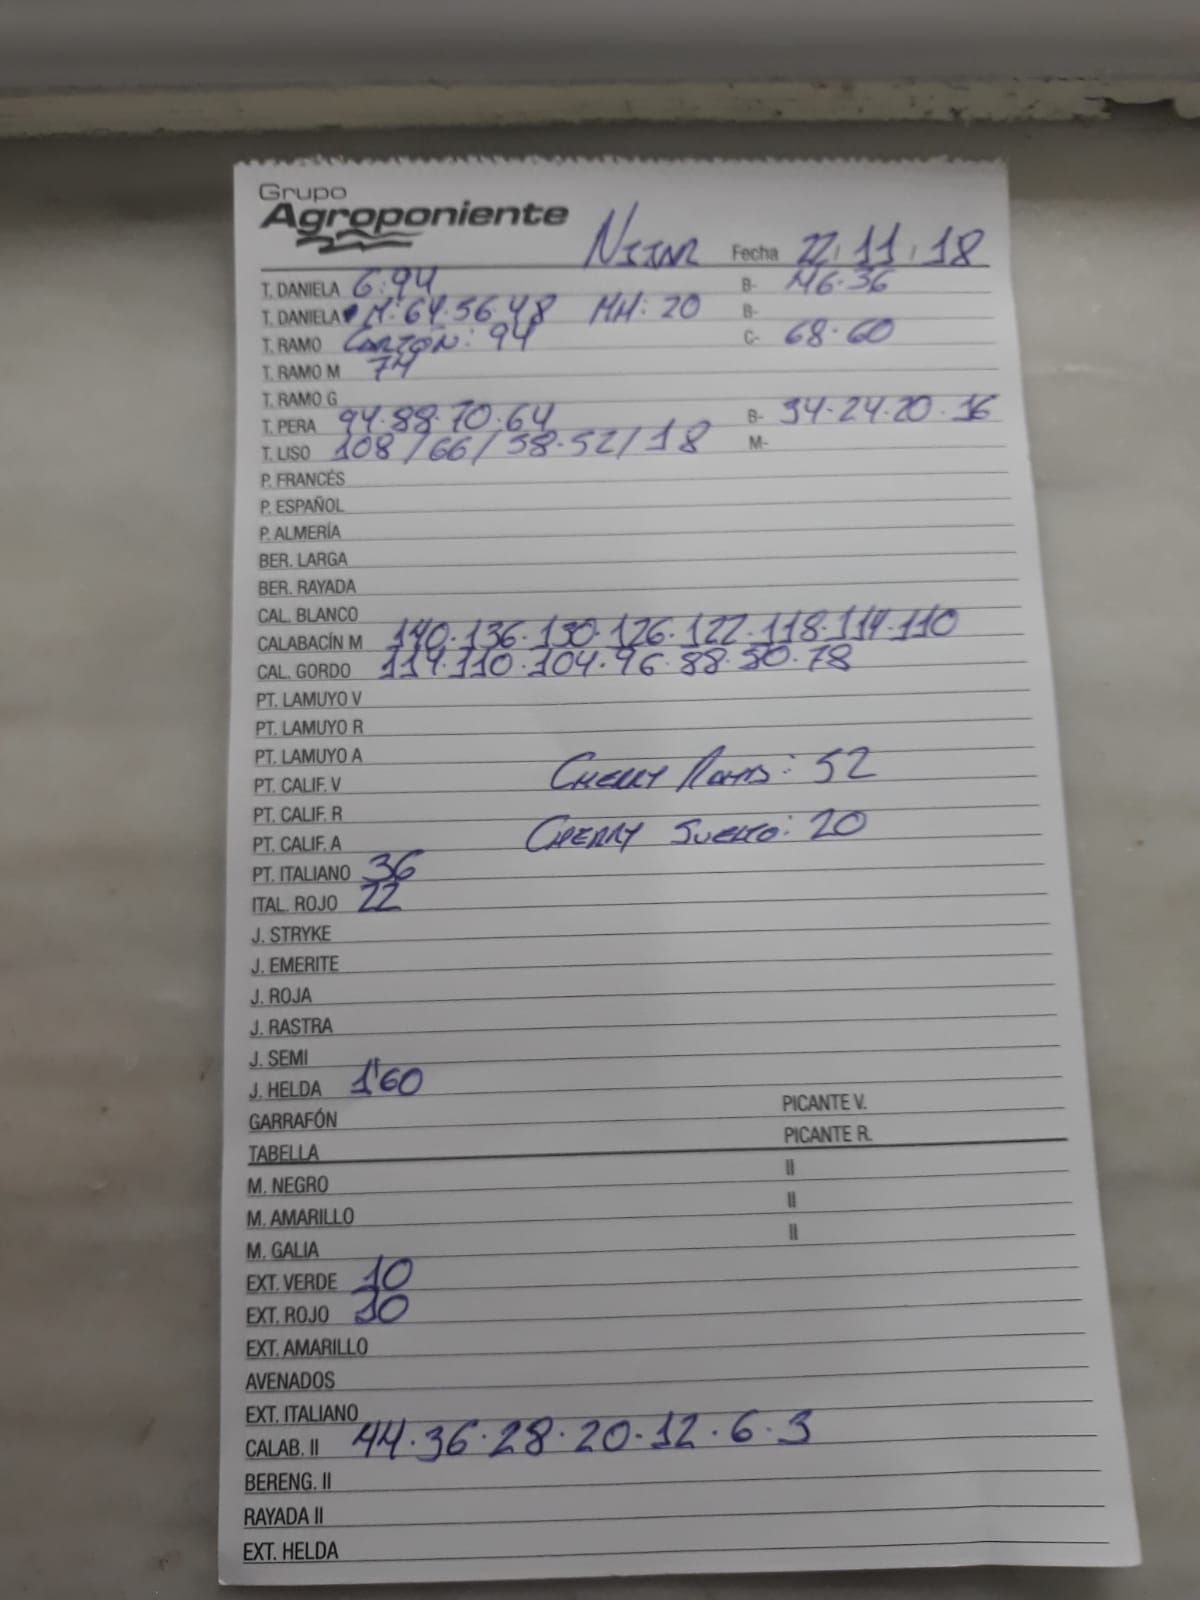 Grupo
Agroponiente
NIJAR Fecha 22/11/18
T. DANIELA G:94 B- M6·36
T. DANIELA M·64·56·48 MM:20 B-
T. RAMO CORAZÓN: 94 C- 68·60
T. RAMO M 74
T. RAMO G
T. PERA 94·88·70·64 B- 34·24·20·16
T. LISO 108/66/58·52/18 M-
P. FRANCÉS
P. ESPAÑOL
P. ALMERÍA
BER. LARGA
BER. RAYADA
CAL. BLANCO
CALABACÍN M 140·136·130·126·122·118·114·110
CAL. GORDO 114·110·104·96·88·80·78
PT. LAMUYO V
PT. LAMUYO R
PT. LAMUYO A
CHERRY RAMA: 52
PT. CALIF. V
PT. CALIF. R
CHERRY SUELTO: 20
PT. CALIF. A
PT. ITALIANO 36
ITAL. ROJO 22
J. STRYKE
J. EMERITE
J. ROJA
J. RASTRA
J. SEMI
J. HELDA 1'60
GARRAFÓN PICANTE V.
TABELLA PICANTE R.
M. NEGRO II
M. AMARILLO II
M. GALIA II
EXT. VERDE 10
EXT. ROJO 10
EXT. AMARILLO
AVENADOS
EXT. ITALIANO
CALAB. II 44·36·28·20·12·6·3
BERENG. II
RAYADA II
EXT. HELDA